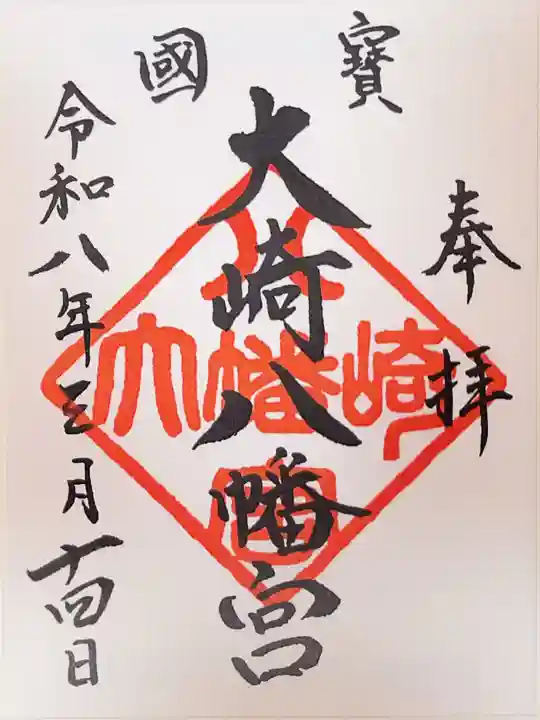 寶國
奉拝
大崎八幡宮
令和八年三月十四日
八
大幡崎
宮